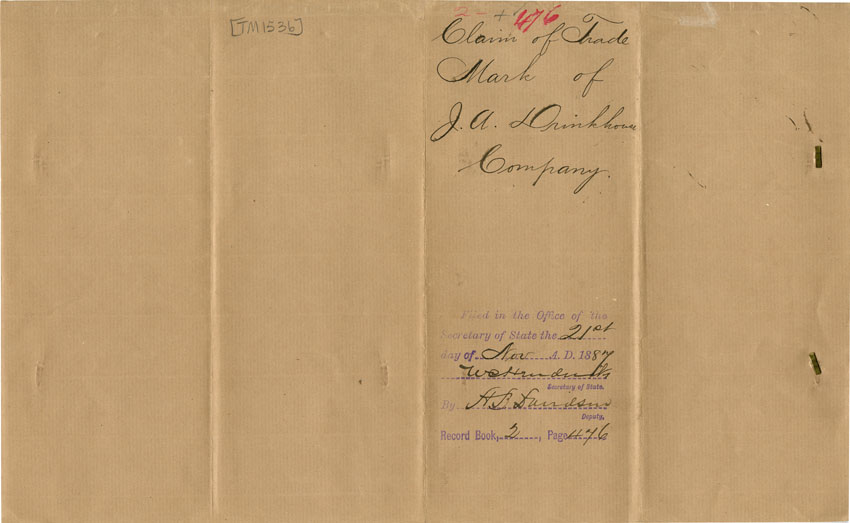 [TM1536]
476
Claim of Trade
Mark of
J. A. Drinkhouse
Company.
Filed in the Office of the
Secretary of State the 21st
day of Nov A. D. 1887
W C Hendricks
Secretary of State.
By A B Davidson
Deputy.
Record Book, 2, Page 476